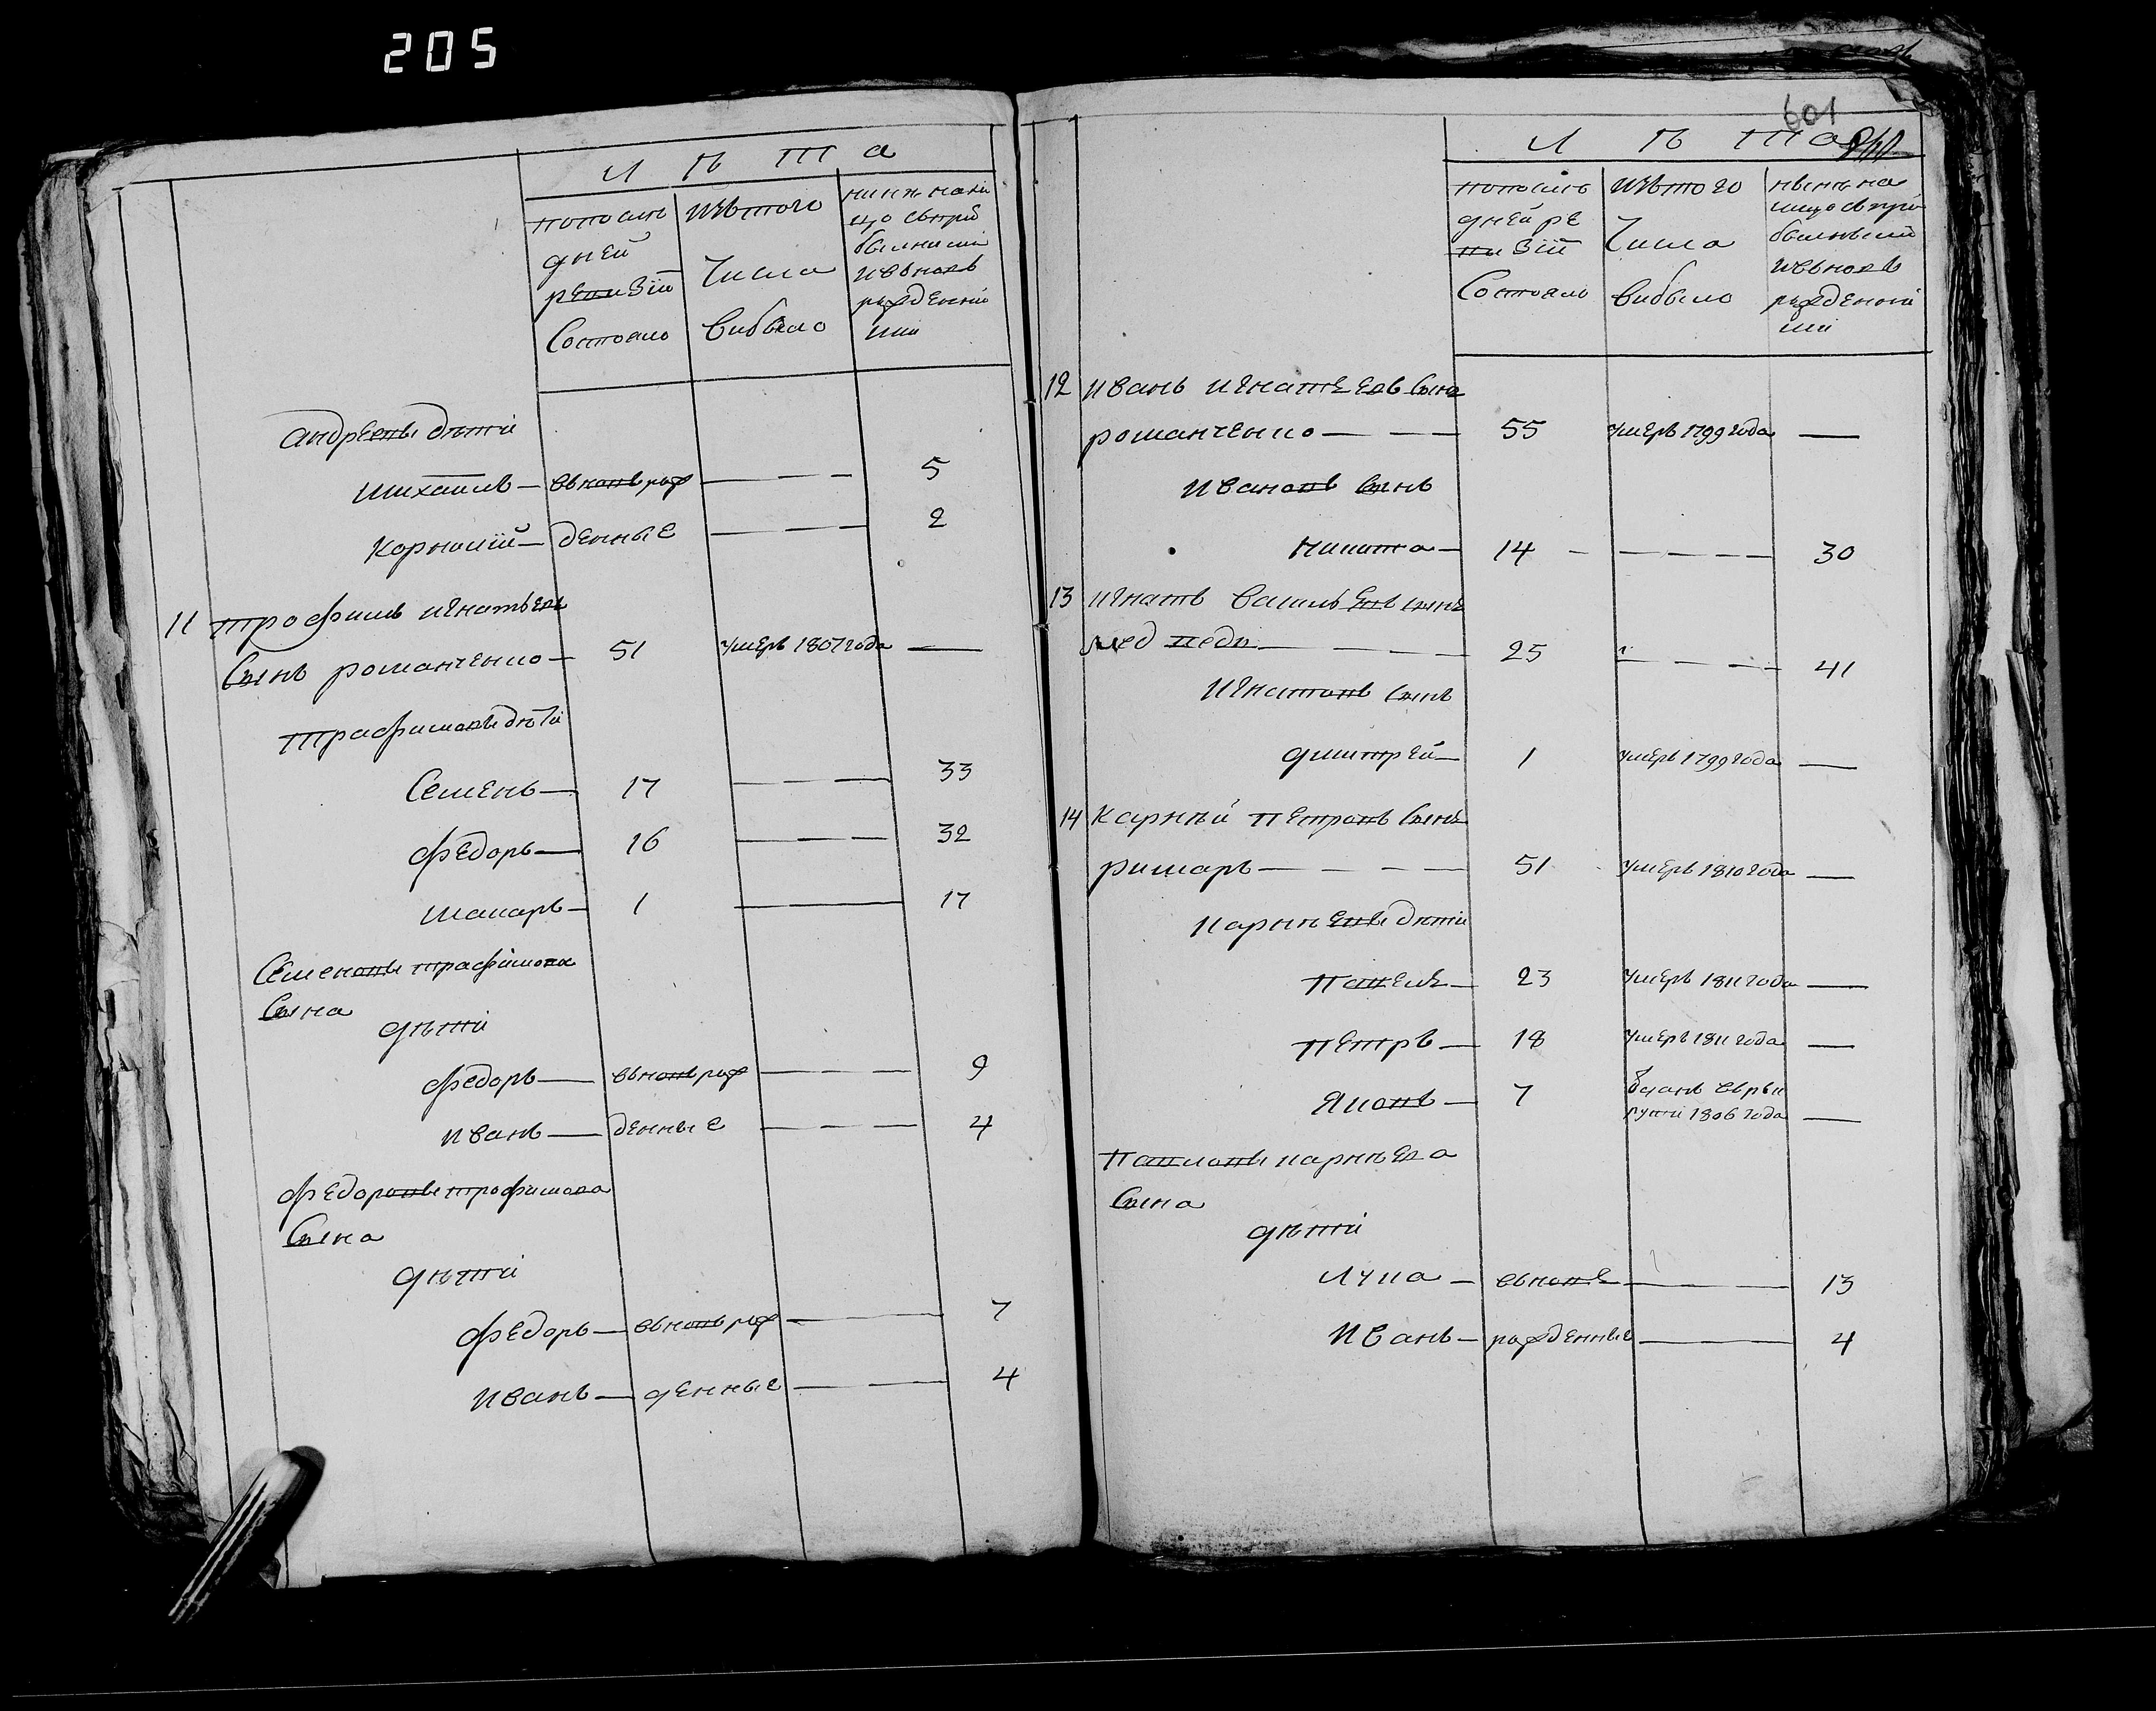 205
Л Ѣ Т А
попосле
дней
ревизіи
Состояло
изътого
Числа
выбыло
нынѣ нали
цо съпри
былыми
ивновь
рожденны
ми
андреевы дѣти
михаилъ — вьновь рож — — — 5
корнилій — денные — — — 2
11 трофимъ игнатьевъ
Сынъ романченко — 51 умеръ 1807 года —
трафимовы дѣти
Семенъ — 17 — — — 33
федоръ — 16 — — — 32
макаръ — 1 — 17
Семеновы трафимова
Сына
дѣти
федоръ — вьновь рож — — — 9
иванъ — денные — — — 4
федоровы трофимова
Сына
дѣти
федоръ — вьновь рож — — 7
иванъ — денные — — 4
601
Л Ѣ Т А
попосле
дней ре
визіи
Состояло
изътого
Числа
выбыло
нынѣ на
лицо съпри
былыми
ивьновь
рожденны
ми
12 иванъ игнатьевъ Сынъ
романченко — — — 55 умеръ 1799 года —
ивановъ Сынъ
никита — 14 — — — — — 30
13 игнатъ Василь евъ сынъ
медведь — — — 25 — — — — 41
игнатовъ сынъ
дмитрей — 1 умеръ 1799 года —
14 карнѣй петровъ Сынъ
римаръ — — — — 51 умеръ 1810 года —
карнѣевы дѣти
павелъ — 23 умеръ 1811 года —
петръ — 18 умеръ 1811 года —
яковъ — 7 одданъ врьк
руты 1806 года —
павловы карнѣева
Сына
дѣти
лука — вьновь — 13
иванъ — рожденные — 4